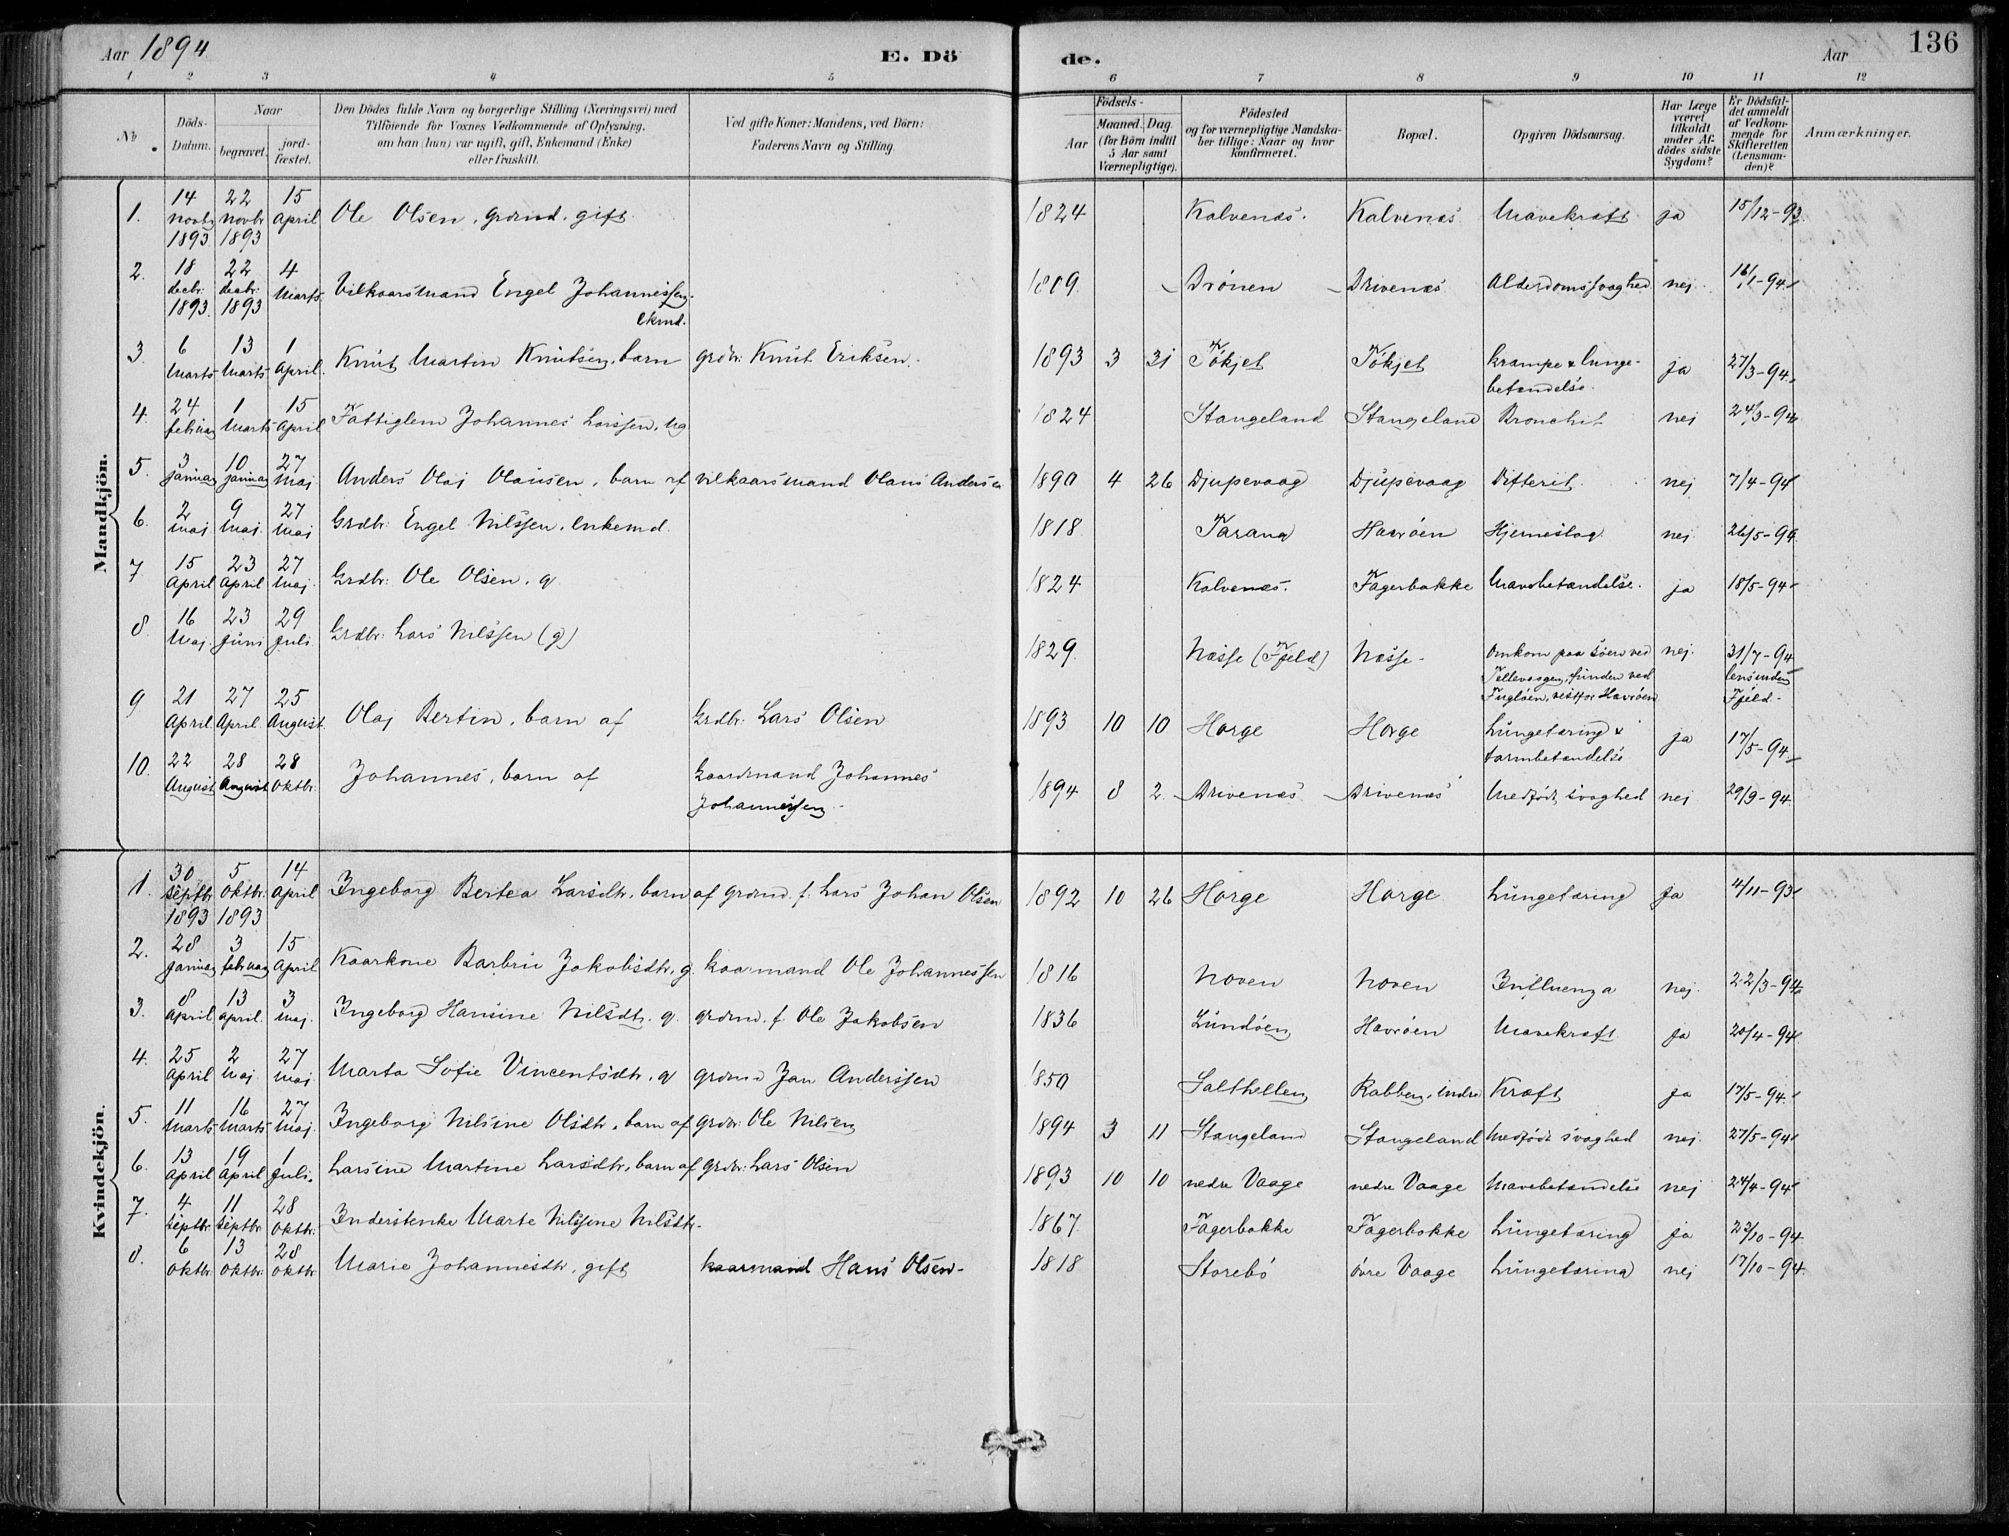 Aar 1894. E. Döde. Aar 136
1 2 3 4 5 6 7 8 9 10 11 12
No. Döds-Datum. Naar begravet. jordfæstet. Den Dödes fulde Navn og borgerlige Stilling (Næringsvei) med Tilföiende for Voxnes Vedkommende af Oplysning, om han (hun) var ugift, gift, Enkemand (Enke) eller fraskilt. Ved gifte Koner: Mandens, ved Börn: Faderens Navn og Stilling. Födsels- Aar Maaned. Dag. (for Börn indtil 5 Aar samt Værnepligtige). Födested og for værnepligtige Mandskaber tillige: Naar og hvor konfirmeret. Bopæl. Opgiven Dödsaarsag. Har Læge været tilkaldt under Afdödes sidste Sygdom? Er Dödsfaldet anmeldt af Vedkommende for Skifteretten (Lensmanden)? Anmærkninger.
Mandkjön.
1. 14 novbr 1893 22 novbr 1893 15 April Ole Olsen, grdmd. gift. 1824 Kalvenæs. Kalvenæs Mavekræft ja 15/12-93.
2. 18 decbr. 1893. 22 decbr. 1893 4 Marts. Vilkaarsmand Engel Johannessen. Ekmd. 1809. Drönen Drivenæs Alderdomssvaghed nej 16/1-94
3. 6 Marts 13 Marts 1 April. Knut Martin Knutsen, barn grdbr. Knut Eriksen. 1893 3 31 Tökjet Tökjet Krampe & lungebetændelse. ja 27/3-94.
4. 24 februar 1 Marts 15 April Fattiglem Johannes Larssen, ug. 1824 Stangeland Stangeland Bronchit nej 24/3-94
5. 3 januar 10 januar 27 Maj Anders Olaj Olausen, barn af vilkaarsmand Olaus Andersen 1890 4 26 Djupevaag Djupevaag Difterit. nej 7/4-94
6. 2 Maj 9 Maj. 27 Maj Grdbr. Engel Nilssen, Enkemd. 1818. Tarang Havröen Hjerneslag. nej 26/5-94.
7 15 April 23 April 27 Maj. Grdbr. Ole Olsen. g 1824 Kalvenæs. Fagerbakke Mavebetændelse. ja 18/5-94
8. 16 Maj. 23 Juni 29 Juli Grdbr. Lars Nilssen (g) 1829. Næsse (Fjeld) Næsse. Omkom paa söen ved Tellevaagen, funden ved Fuglöen, vest for Havröen nej. 31/7-94 lensmden Fjeld.
9 21 April 27 April. 25 August. Olaj Bertin, barn af Grdbr. Lars Olsen 1893 10 10 Horge Horge Lungetæring & tarmbetændelse ja 17/5-94
10. 22 August 28 August 28 Oktbr. Johannes, barn af Gaardmand Johannes Johannessen. 1894 8 2. Drivenæs Drivenæs Medfödt svaghed nej 29/9-94.
Kvindekjön.
1. 30 Septbr 1893 5 Oktbr. 1893 14 April Ingeborg Bertea Larsdtr. barn af grdmd. f. Lars Johan Olsen 1892 10 26 Horge Horge. Lungetæring Ja 4/11-93
2. 28 januar 3 februar 15 April Kaarkone Barbru Jakobsdtr, g. kaarmand Ole Johannessen 1816 Noven Noven Influenza nej. 22/3-94
3. 8 April 13 April. 3 Maj. Ingeborg Hansine Nilsdtr. g. grdmd. f. Ole Jakobsen 1836 Lundöen Havröen Mavekræft Ja 20/4-94
4. 25 April 2 Maj 27 Maj Marta Sofie Vincentsdtr, g grdmd Jan Anderssen 1850 Salthellen Rabben, indre Kræft ja 17/5-94.
5. 11 Marts 16 Marts 27 Maj. Ingeborg Nilsine Olsdtr, barn af grdbr. Ole Nilsen 1894 3 11 Stangeland Stangeland Medfödt svaghed nej 27/5-94
6. 13 April 19 April 1 Juli. Larsine Martine Larsdtr, barn af grdbr. Lars Olsen 1893 10 10 nedre Vaage nedre Vaage Mavebetændelse nej 24/4-94
7. 4 Septbr. 11 Septbr. 28 Oktbr. Inderstenke Marte Nilssine Nilsdtr. 1867. Fagerbakke Fagerbakke Lungetæring ja 23/10-94
8. 6 Oktbr. 13 Oktbr. 28 Oktbr Marie Johannesdtr, gift kaarmand Hans Olsen. 1818 Storebö övre Vaage Lungetæring nej 17/10-94.